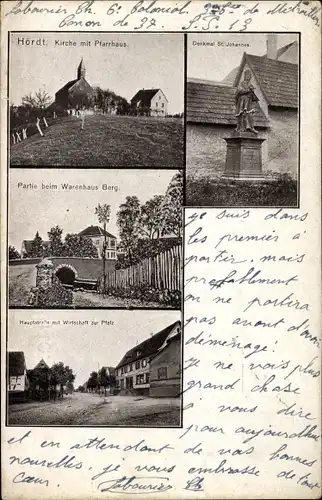 Labourier Ch. 6e Colonial, 226e de Mitrailles
Canon de 37. S.P. 13
Hördt. Kirche mit Pfarrhaus.
Denkmal St. Johannes
Partie beim Warenhaus Berg.
Hauptstraße mit Wirtschaft zur Pfalz
je suis dans
les premier à
partir, mais
probablement
on ne partira
pas avant d'avoir
déménagé!
je ne vois plus
grand chose
à vous dire
pour aujourd'hui
et en attendant de vos bonnes
nouvelles, je vous embrasse de tout
cœur. Labourier Ch